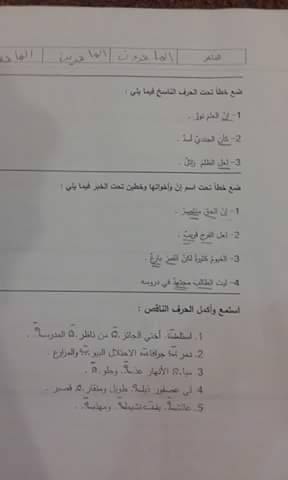 الماهر الماهرون الماهرين
ضع خطاً تحت الحرف الناسخ فيما يلي :
1- إنّ العلمَ نورٌ .
2- كأن الجنديّ أسدٌ .
3- لعل الظلمَ زائلٌ .
ضع خطاً تحت اسم إنّ وأخواتها وخطين تحت الخبر فيما يلي :
1- إنّ الحقَ منتصرٌ .
2- لعل الفرجَ قريبٌ .
3- الغيومُ كثيرةٌ لكنّ القمرَ بازغٌ .
4- ليت الطالبَ مجتهدٌ في دروسه
أستمع وأكمل الحرف الناقص :
1. استلمت أختي الجائزة من ناظرة المدرسة .
2. دمرت جرافات الاحتلال البيوت والمزارع .
3. مياه الأنهار عذبة وحلوة .
4. لي عصفور ذيله طويل ومنقاره قصير .
5. عائشة بنت نشيطة ومهذبة .